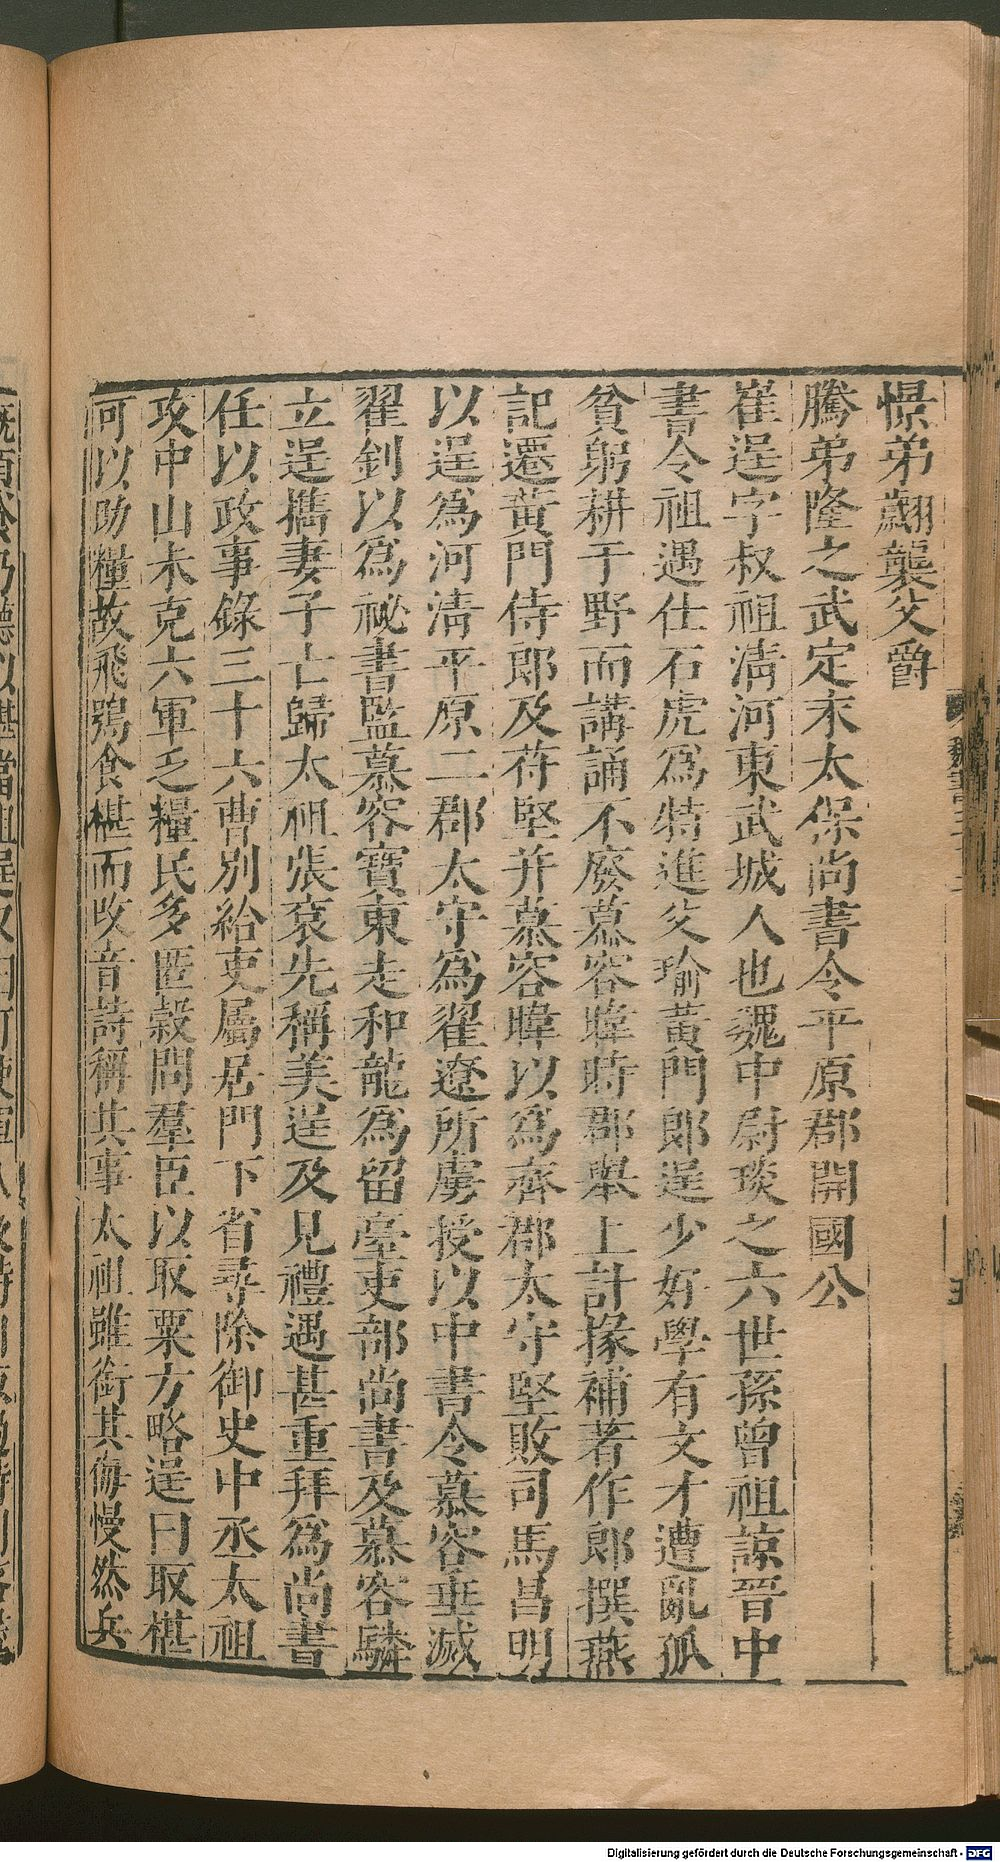 憬弟翽襲父爵
騰弟隆之武定末太保尚書令平原郡開國公
崔逞字叔祖清河東武城人也魏中尉琰之六世孫曾祖諒晉中
書令祖遇仕石虎為特進父瑜黃門郎逞少好學有文才遭亂孤
貧躬耕于野而講誦不廢慕容暐時郡舉上計掾補著作郎撰燕
記遷黃門侍郎及苻堅并慕容暐以為齊郡太守堅敗司馬昌明
以逞為河清平原二郡太守為翟遼所虜授以中書令慕容垂滅
翟釗以為祕書監慕容寶東走和龍為留臺吏部尚書及慕容驎
立逞攜妻子亡歸太祖張袞先稱美逞及見禮遇甚重拜為尚書
任以政事錄三十六曹別給吏屬居門下省尋除御史中丞太祖
攻中山未克六軍乏糧民多匿穀問羣臣以取粟方略逞曰取椹
可以助糧故飛鴞食椹而改音詩稱其事太祖雖銜其侮慢然兵
魏書三十二
五
Digitalisierung gefördert durch die Deutsche Forschungsgemeinschaft - DFG